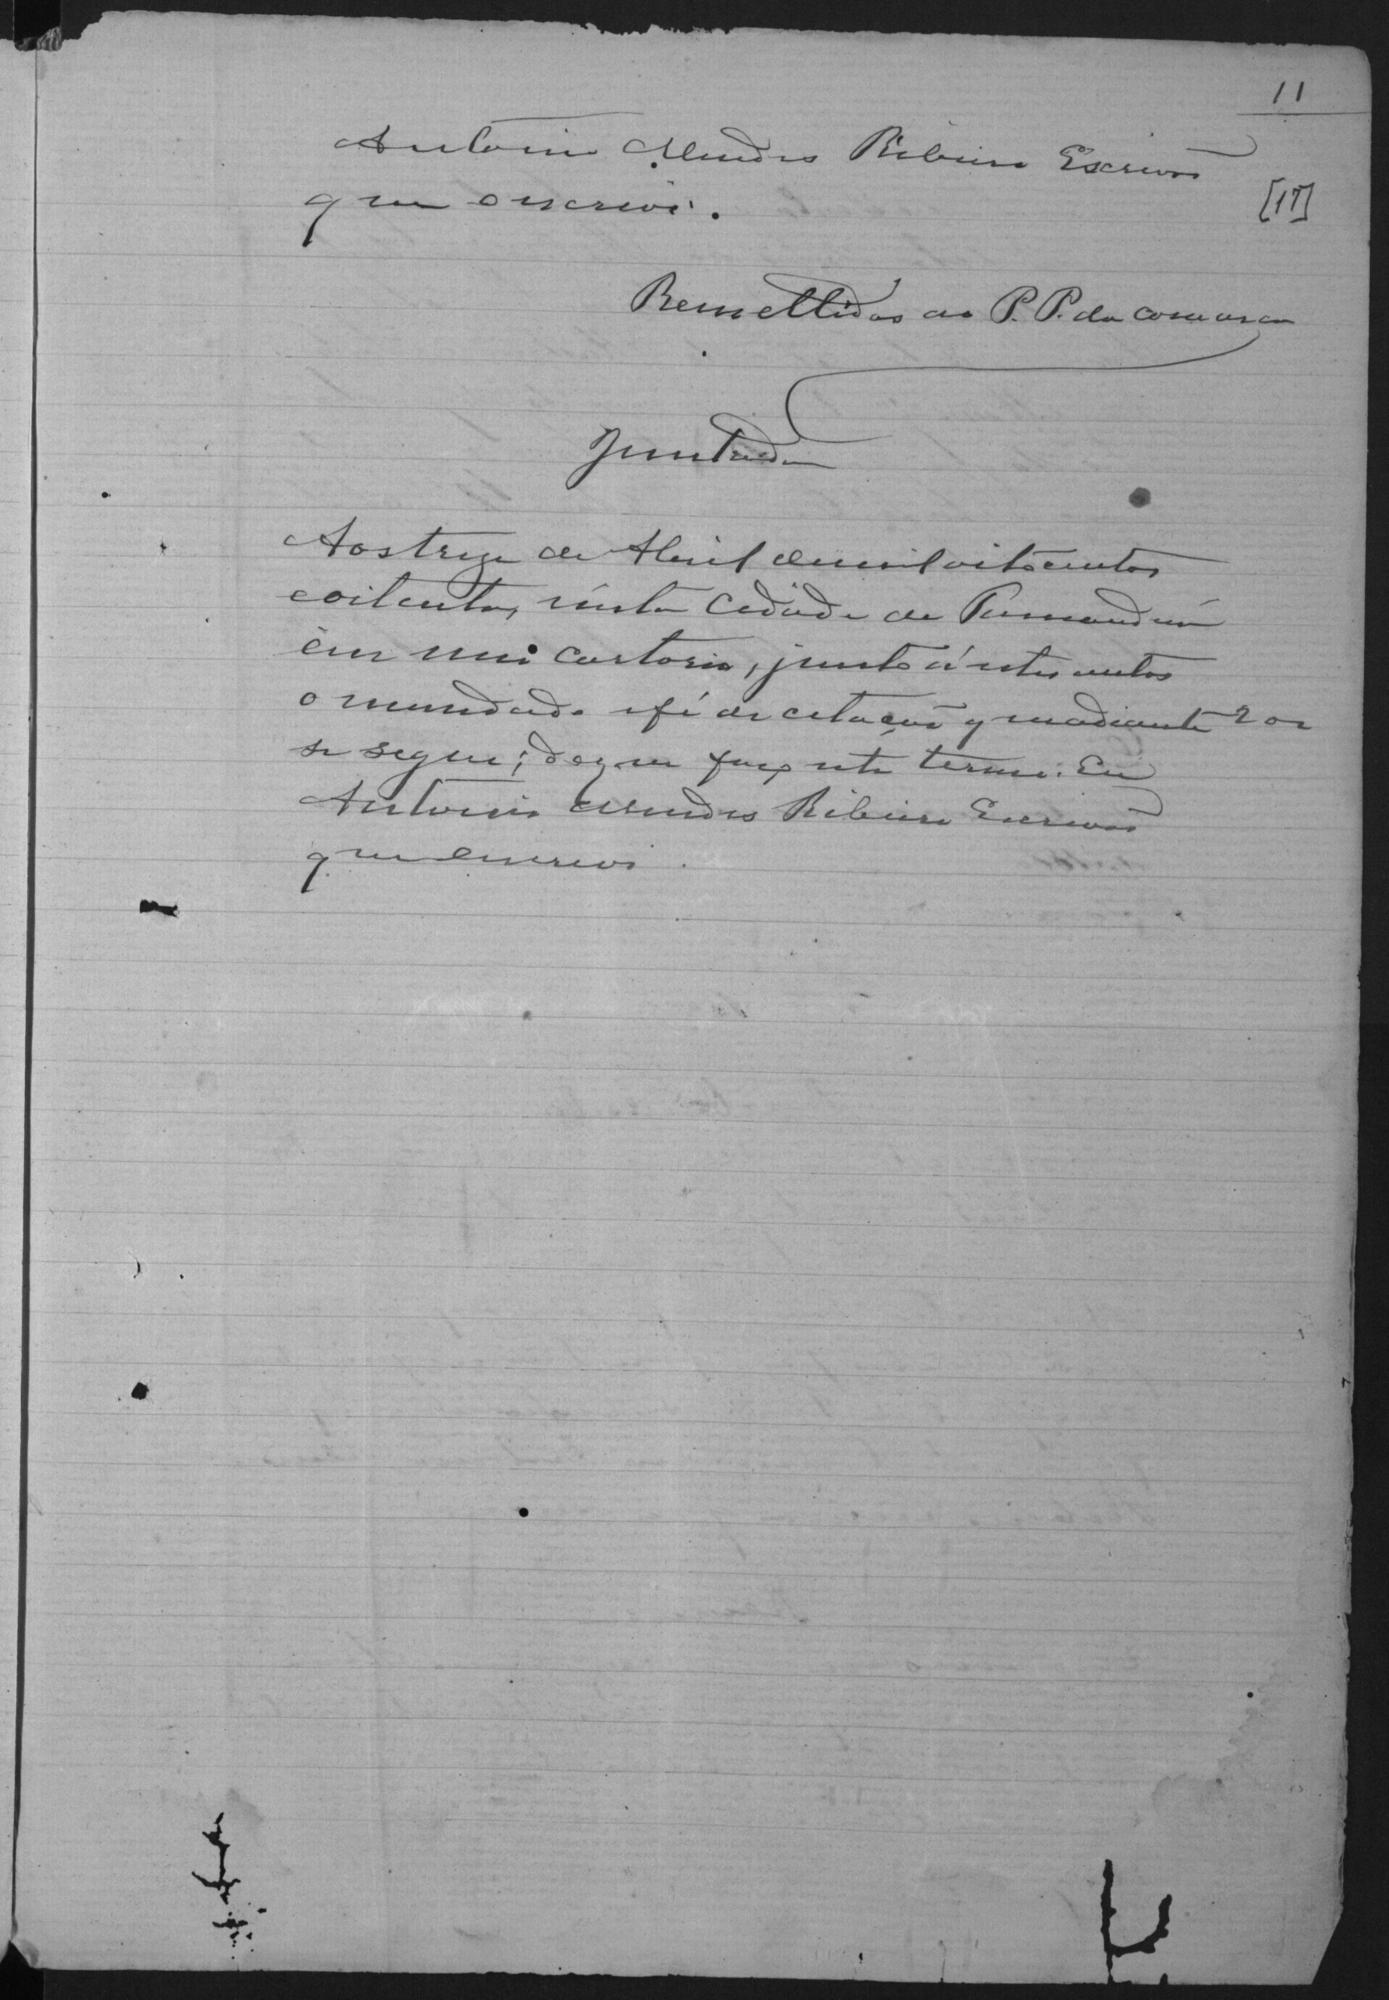 11
Antonio Mendes Ribeiro Escrivão
que o escrevi.
[17]
Remettidos ao P. P. da comarca
Juntada
Aos treze de Abril de mil oito centos
e oitenta, nesta Cidade de
em meu cartorio, junto á estes autos
o mandado e fé de citação q adiante
se segue; do que faço este termo. Eu
Antonio Mendes Ribeiro Escrivão
que escrevi